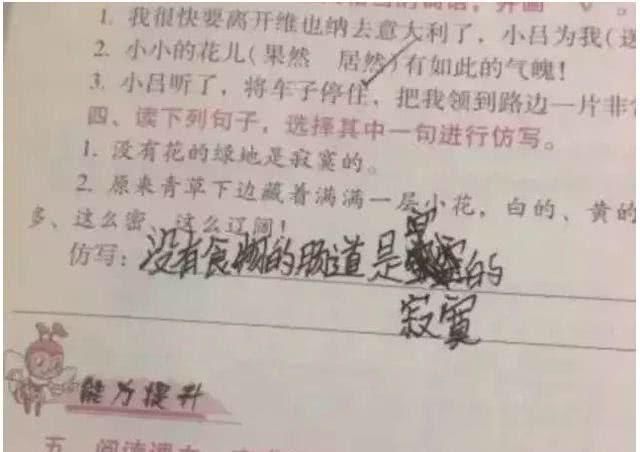 1. 我很快要离开维也纳去意大利了，小吕为我(送
2. 小小的花儿(果然 居然)有如此的气魄！
3. 小吕听了，将车子停住，把我领到路边一片非
四、读下列句子，选择其中一句进行仿写。
1. 没有花的绿地是寂寞的。
2. 原来青草下边藏着满满一层小花，白的、黄的
多、这么密、这么辽阔！
仿写：没有食物的肠道是的
寂寞
能力提升
五、阅读